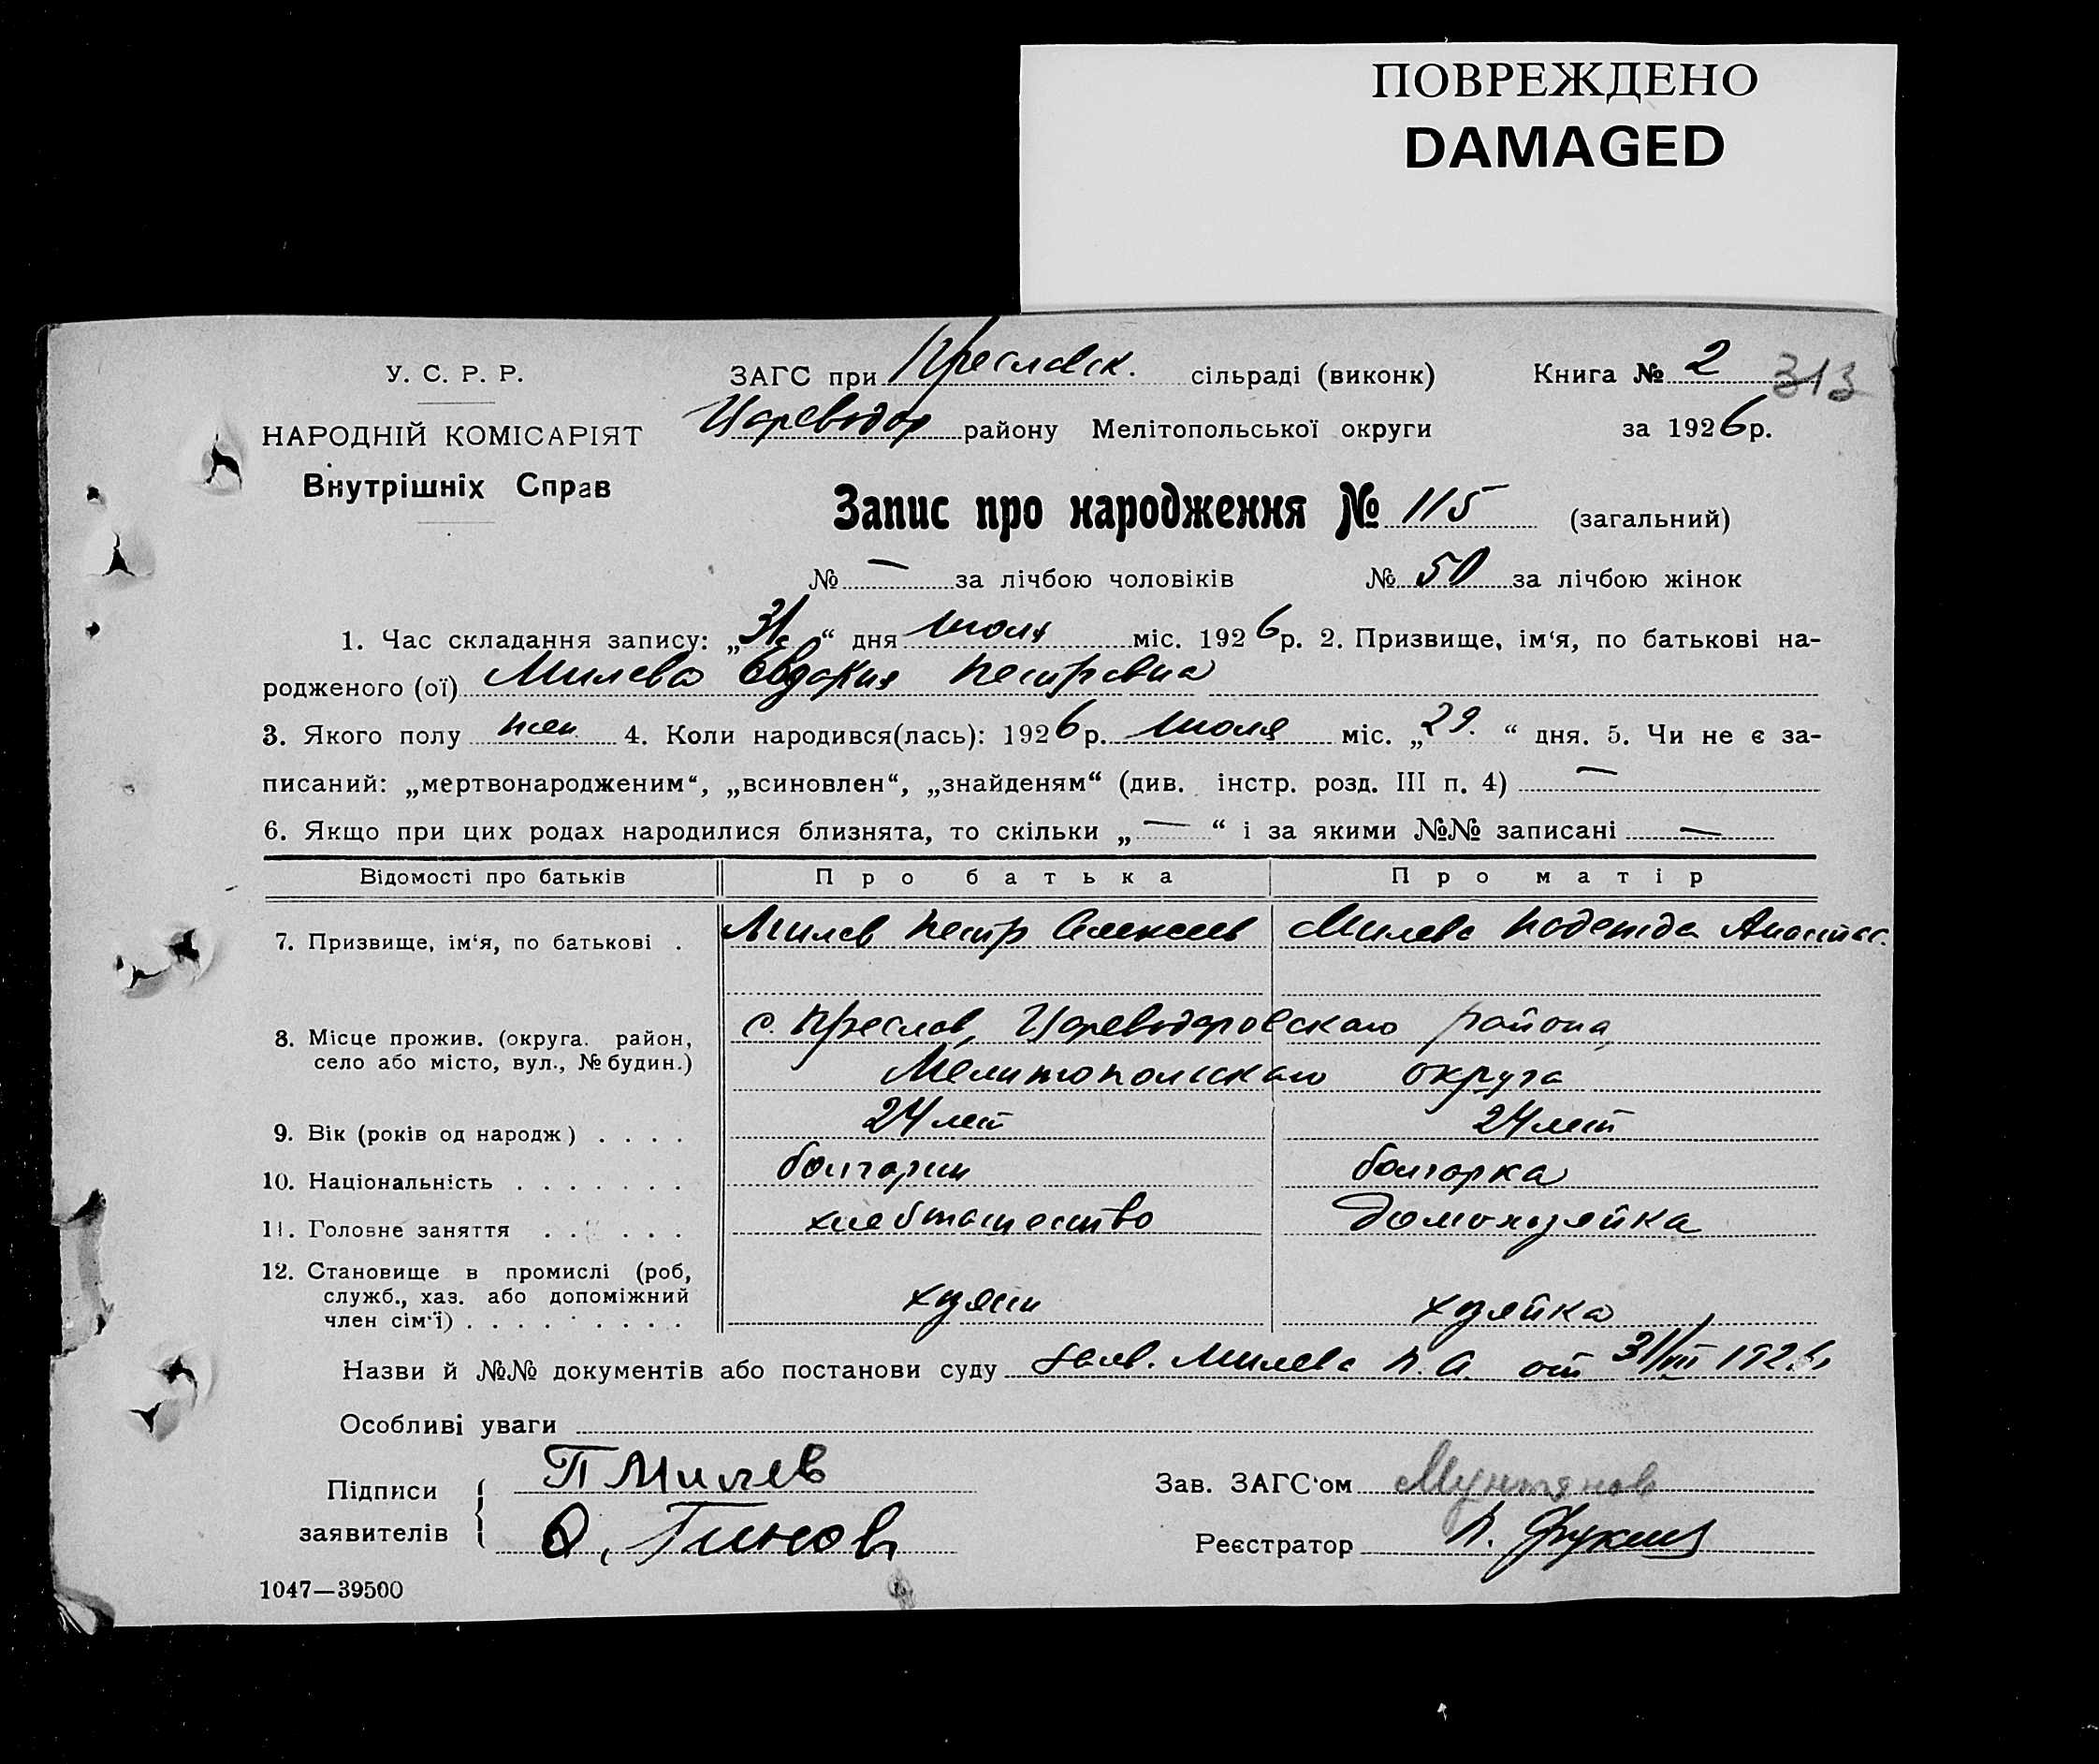 ПОВРЕЖДЕНО
DAMAGED
У. С. Р. Р.
НАРОДНІЙ КОМІСАРІЯТ
Внутрішніх Справ
ЗАГС при Преславск. сільраді (виконк) Книга № 2 313
Цареводар району Мелітопольської округи за 1926 р.
Запис про народження № 115 (загальний)
№ — за лічбою чоловіків № 50 за лічбою жінок
1. Час складання запису: „31“ дня июля міс. 1926 р. 2. Призвище, ім‘я, по батькові на-
родженого (ої) Милева Евдокия Петровна
3. Якого полу жен. 4. Коли народився(лась): 1926 р. июля міс. „29.“ дня. 5. Чи не є за-
писаний: „мертвонародженим“, „всиновлен“, „знайденям“ (див. інстр. розд. III п. 4) —
6. Якщо при цих родах народилися близнята, то скільки „—“ і за якими №№ записані —
Відомості про батьків Про батька Про матір
7. Призвище, ім‘я, по батькові . Милев Петр Алексеев Милева Надежда Анастас.
8. Місце прожив. (округа. район,
село або місто, вул., № будин.)
с. Преслав, Цареводаровскаго района,
Мелитопольскаго округа
9. Вік (років од народж) . . . . 24 лет 24 лет
10. Національність . . . . . . . болгарин болгарка
11. Головне заняття . . . . . . хлебопашество домохозяйка
12. Становище в промислі (роб,
служб., хаз. або допоміжний
член сім‘ї) . . . . . . . . . хозяин хозяйка
Назви й №№ документів або постанови суду заяв. Милева П. А. от 31/VII 1926
Особливі уваги
Підписи
заявителів
П Милев
Зав. ЗАГС‘ом Мунтянов
Гинов
Реєстратор
1047—39500